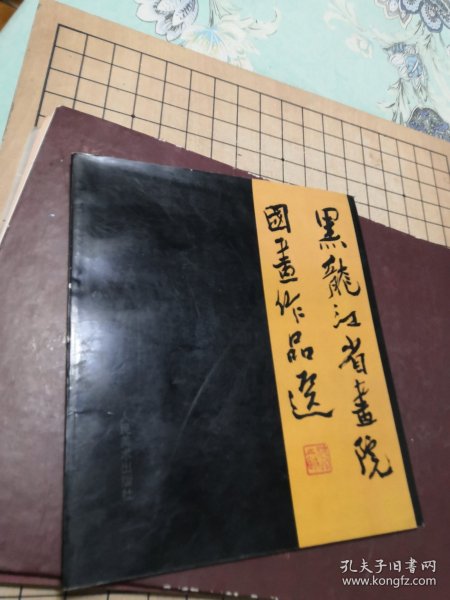 黑龍江省畫院
國畫作品選
孔夫子旧书网
www.kongfz.com